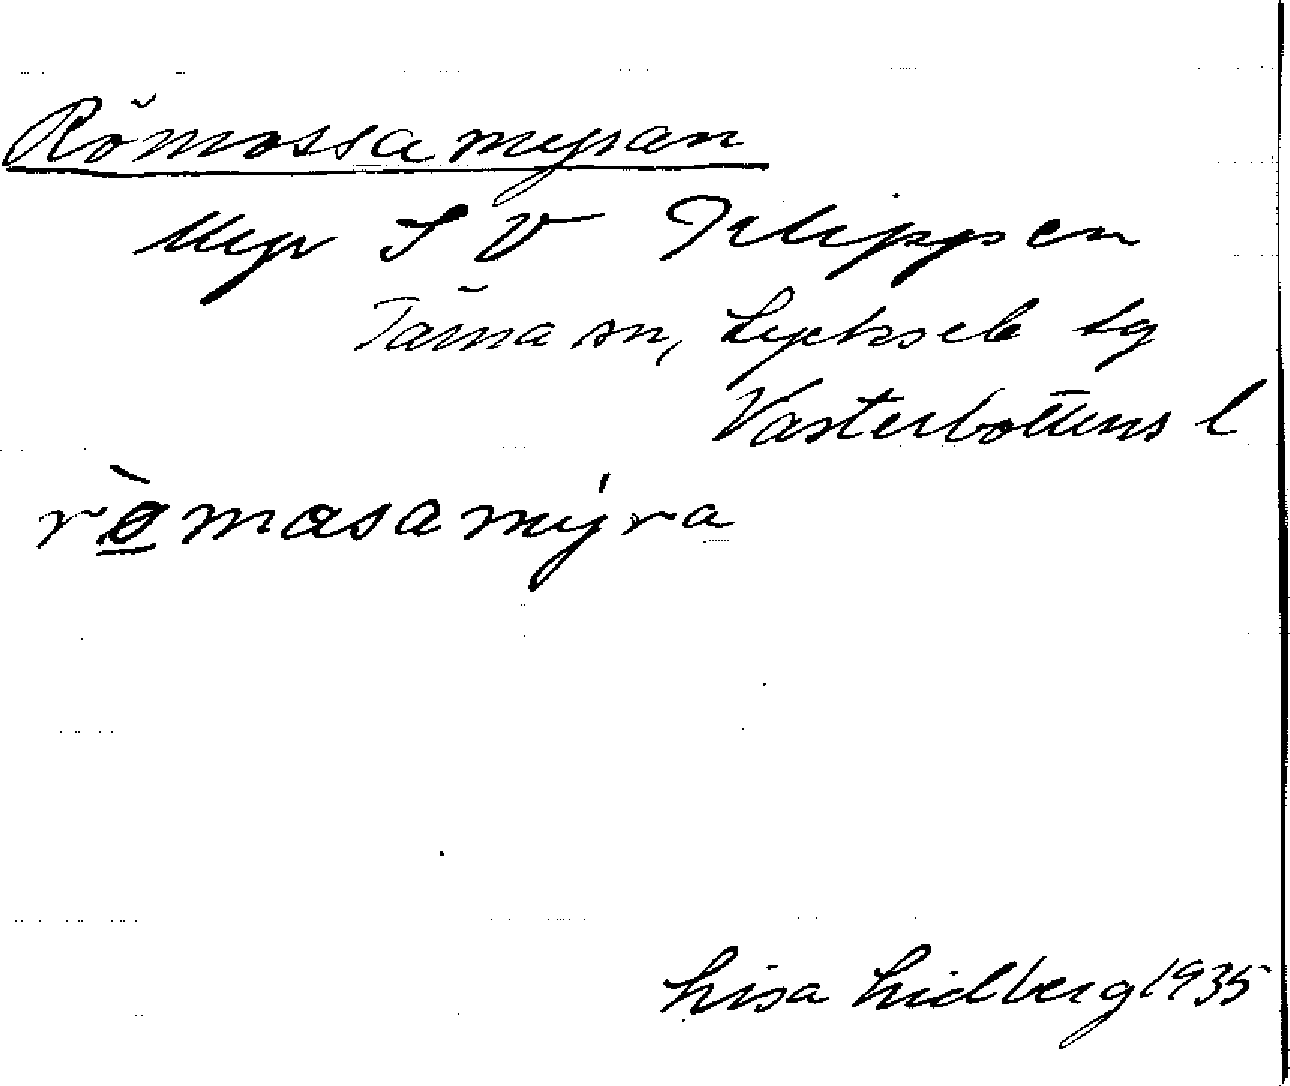 Römossamyran
Myr S V Filippsen
Tärna sn, Lycksele lg
Västerbottens l
rò̲masamýra
Lisa Lidberg 1935